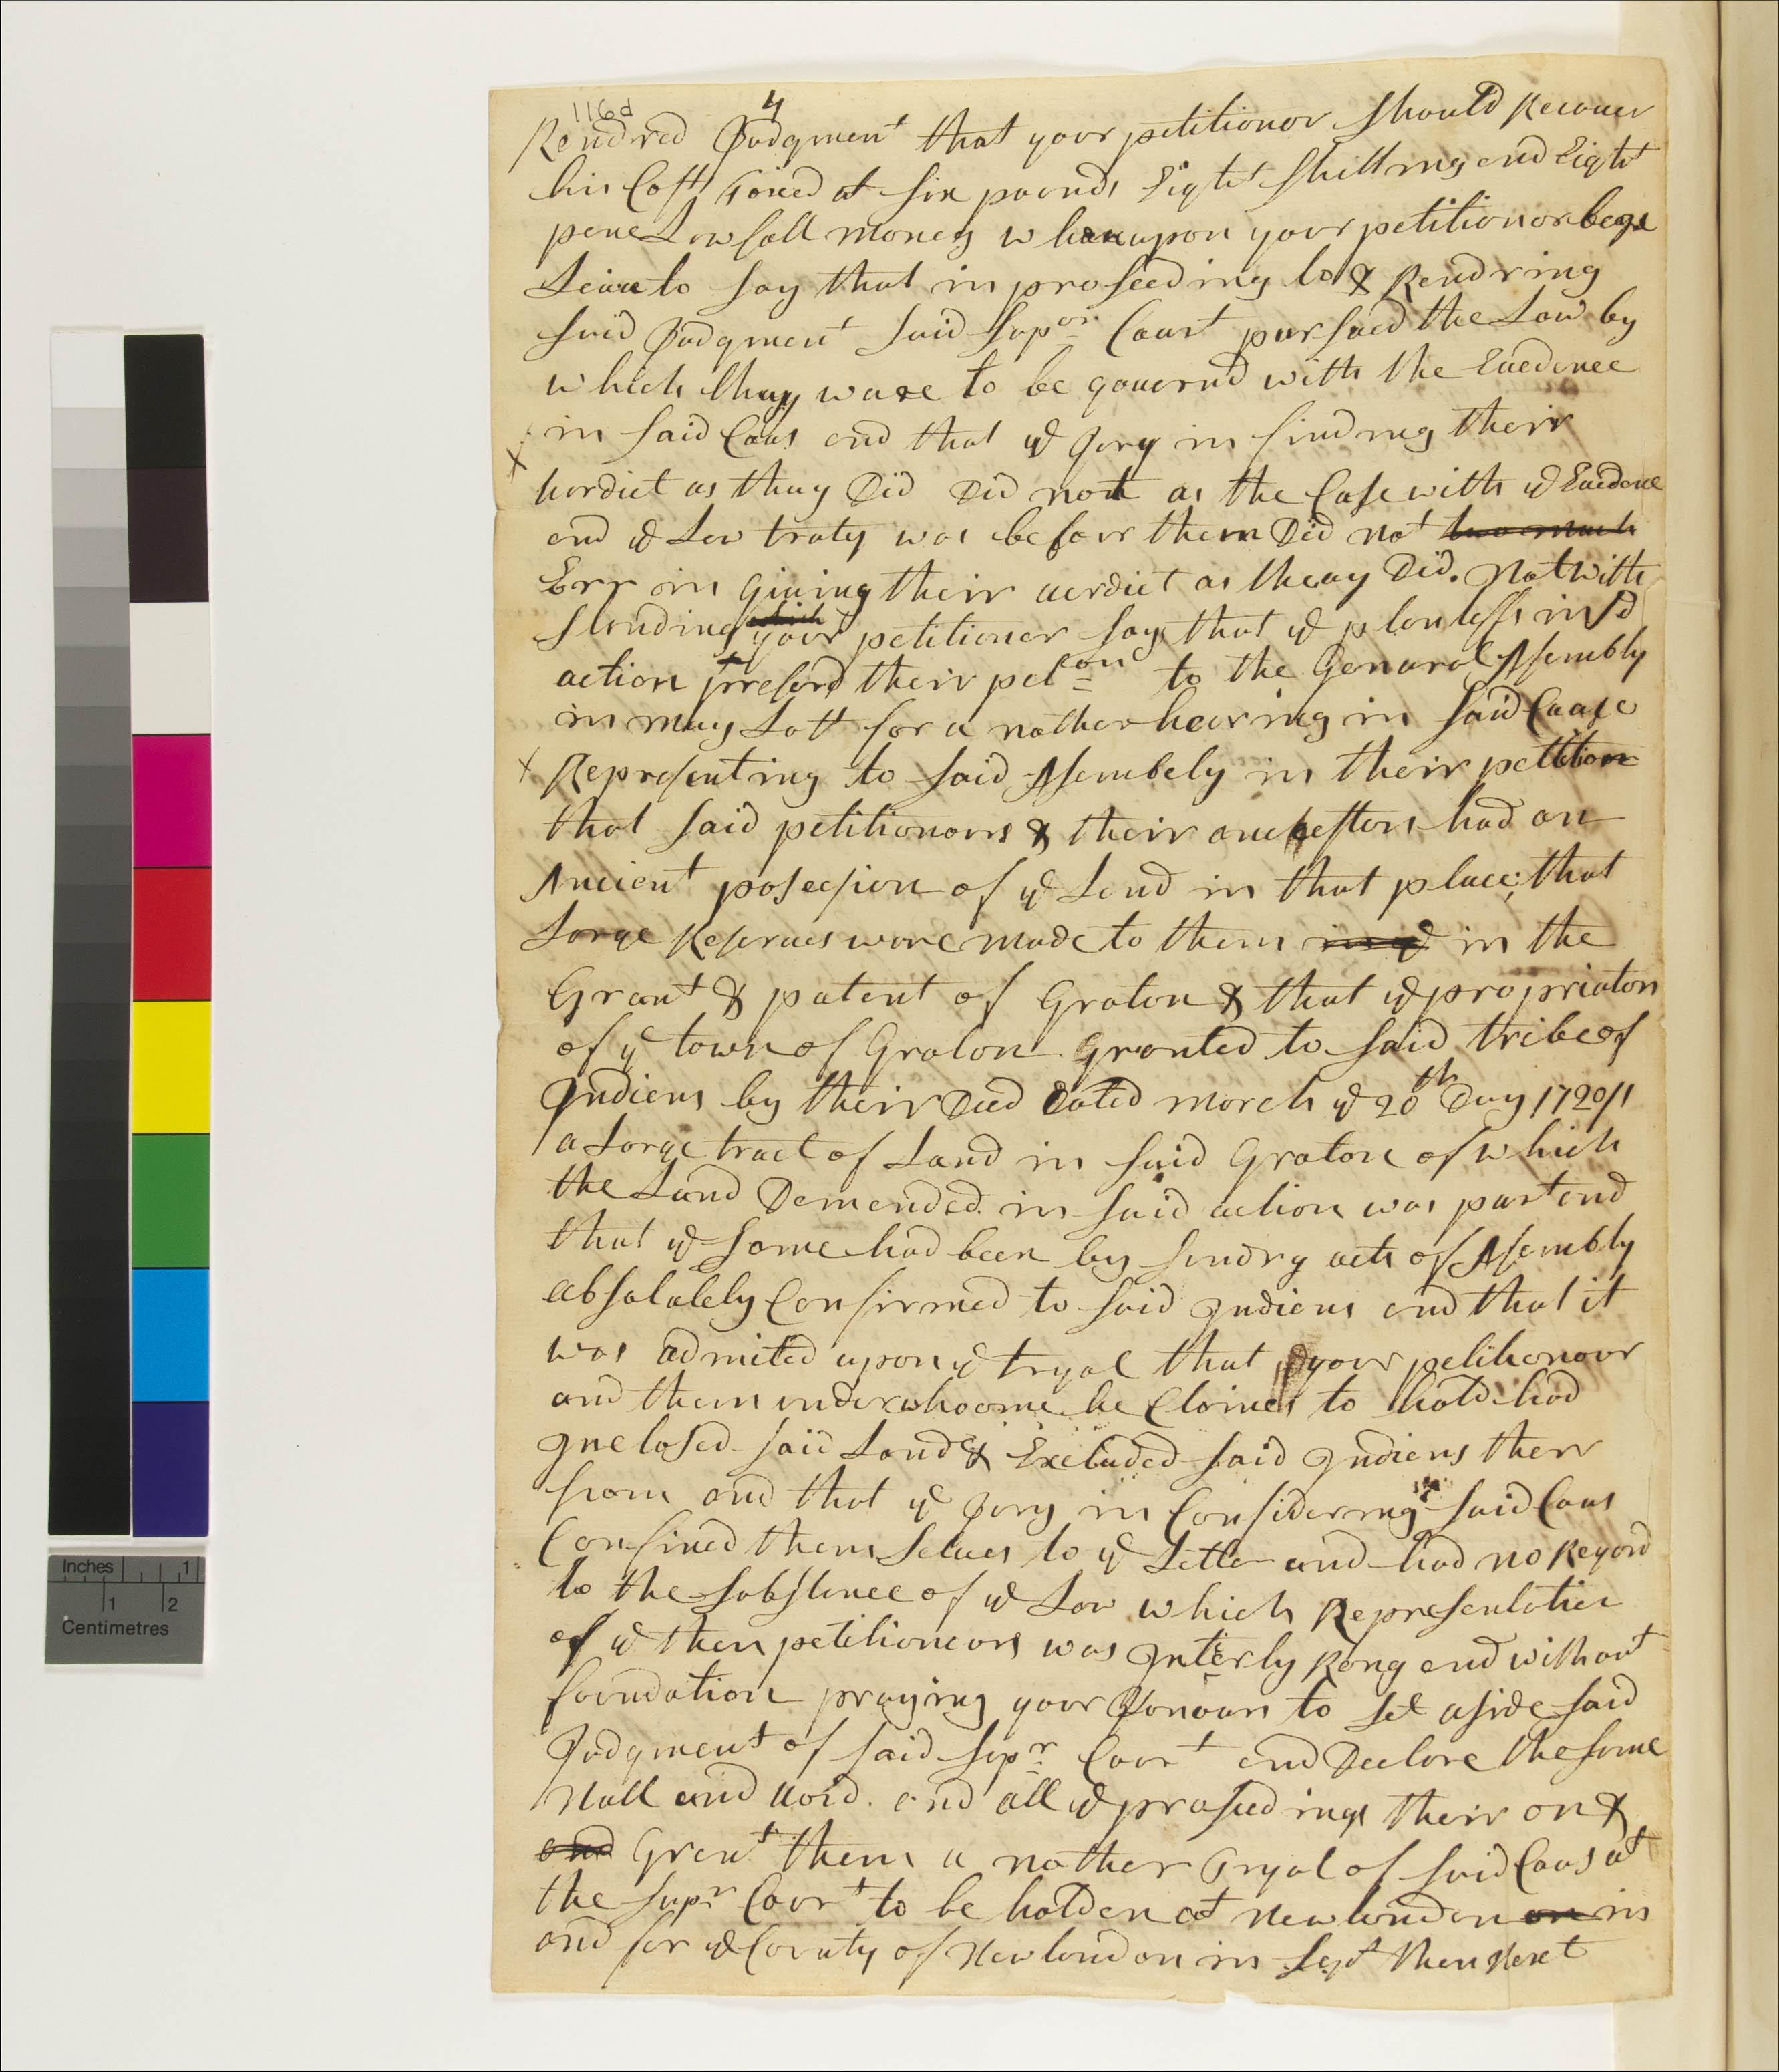 116d
4
Rendred Judgment that your petitionor should Recouer
his Cost Toxed at six pounds Eight shillings and Eight
pene Lowfull money whereupon your petitionor begs
Leiue to say that in proseeding to & Rendring
said Judgment said Supor Court pursued the Law by
which thay ware to be gouernd with the Euedence
in said Caus and that ye Jury in finding their
verdict as thay Did Did not as the Case with ye Euedence
and ye Law truty was befour them Did not
Err in giuing their uerdict as theay Did. Notwith
standing which your petitioner says that ye plantiffs in sd
action preferd their petion to the Genaral Assembly
in may Last for a nother hearing in said Caase
Representing to said Assembely in their petition
that said petitionours & their ancestors had an
Ancient posession of ye Land in that place; that
Large Reserues ware made to them in ye in the
Grant & patent of Groton & that ye propriators
of ye town of Groton Granted to said tribe of
Indiens by their Deed Dated March ye 20th Day 1720/1
a Large tract of Land in said Groton of which
the Land Demended in said action was part and
that ye same had been by sundry acts of Assembly
absolutely Confirmed to said Indiens and that it
was admited upon ye tryal that your petitionour
and them under whoome he Claimes to hold had
Inclosed said Land & Excluded said Indiens ther
from and that ye Jury in Considering said Caus
Confined them selues to ye Letter and had no Regard
to the substence of ye Law which Representation
of ye then petitioneors was Intierly Rong and without
foundation praying your Honours to set aside said
Judgment of said Supr Court and Declare the same
Null and uoid. and all ye proseedings their on &
and Grant them a nother Tryal of said Caus at
the Supr Court to be holden at New london on in
and for ye County of New london in Sept then Next
Inches 1
1 2
Centimetres